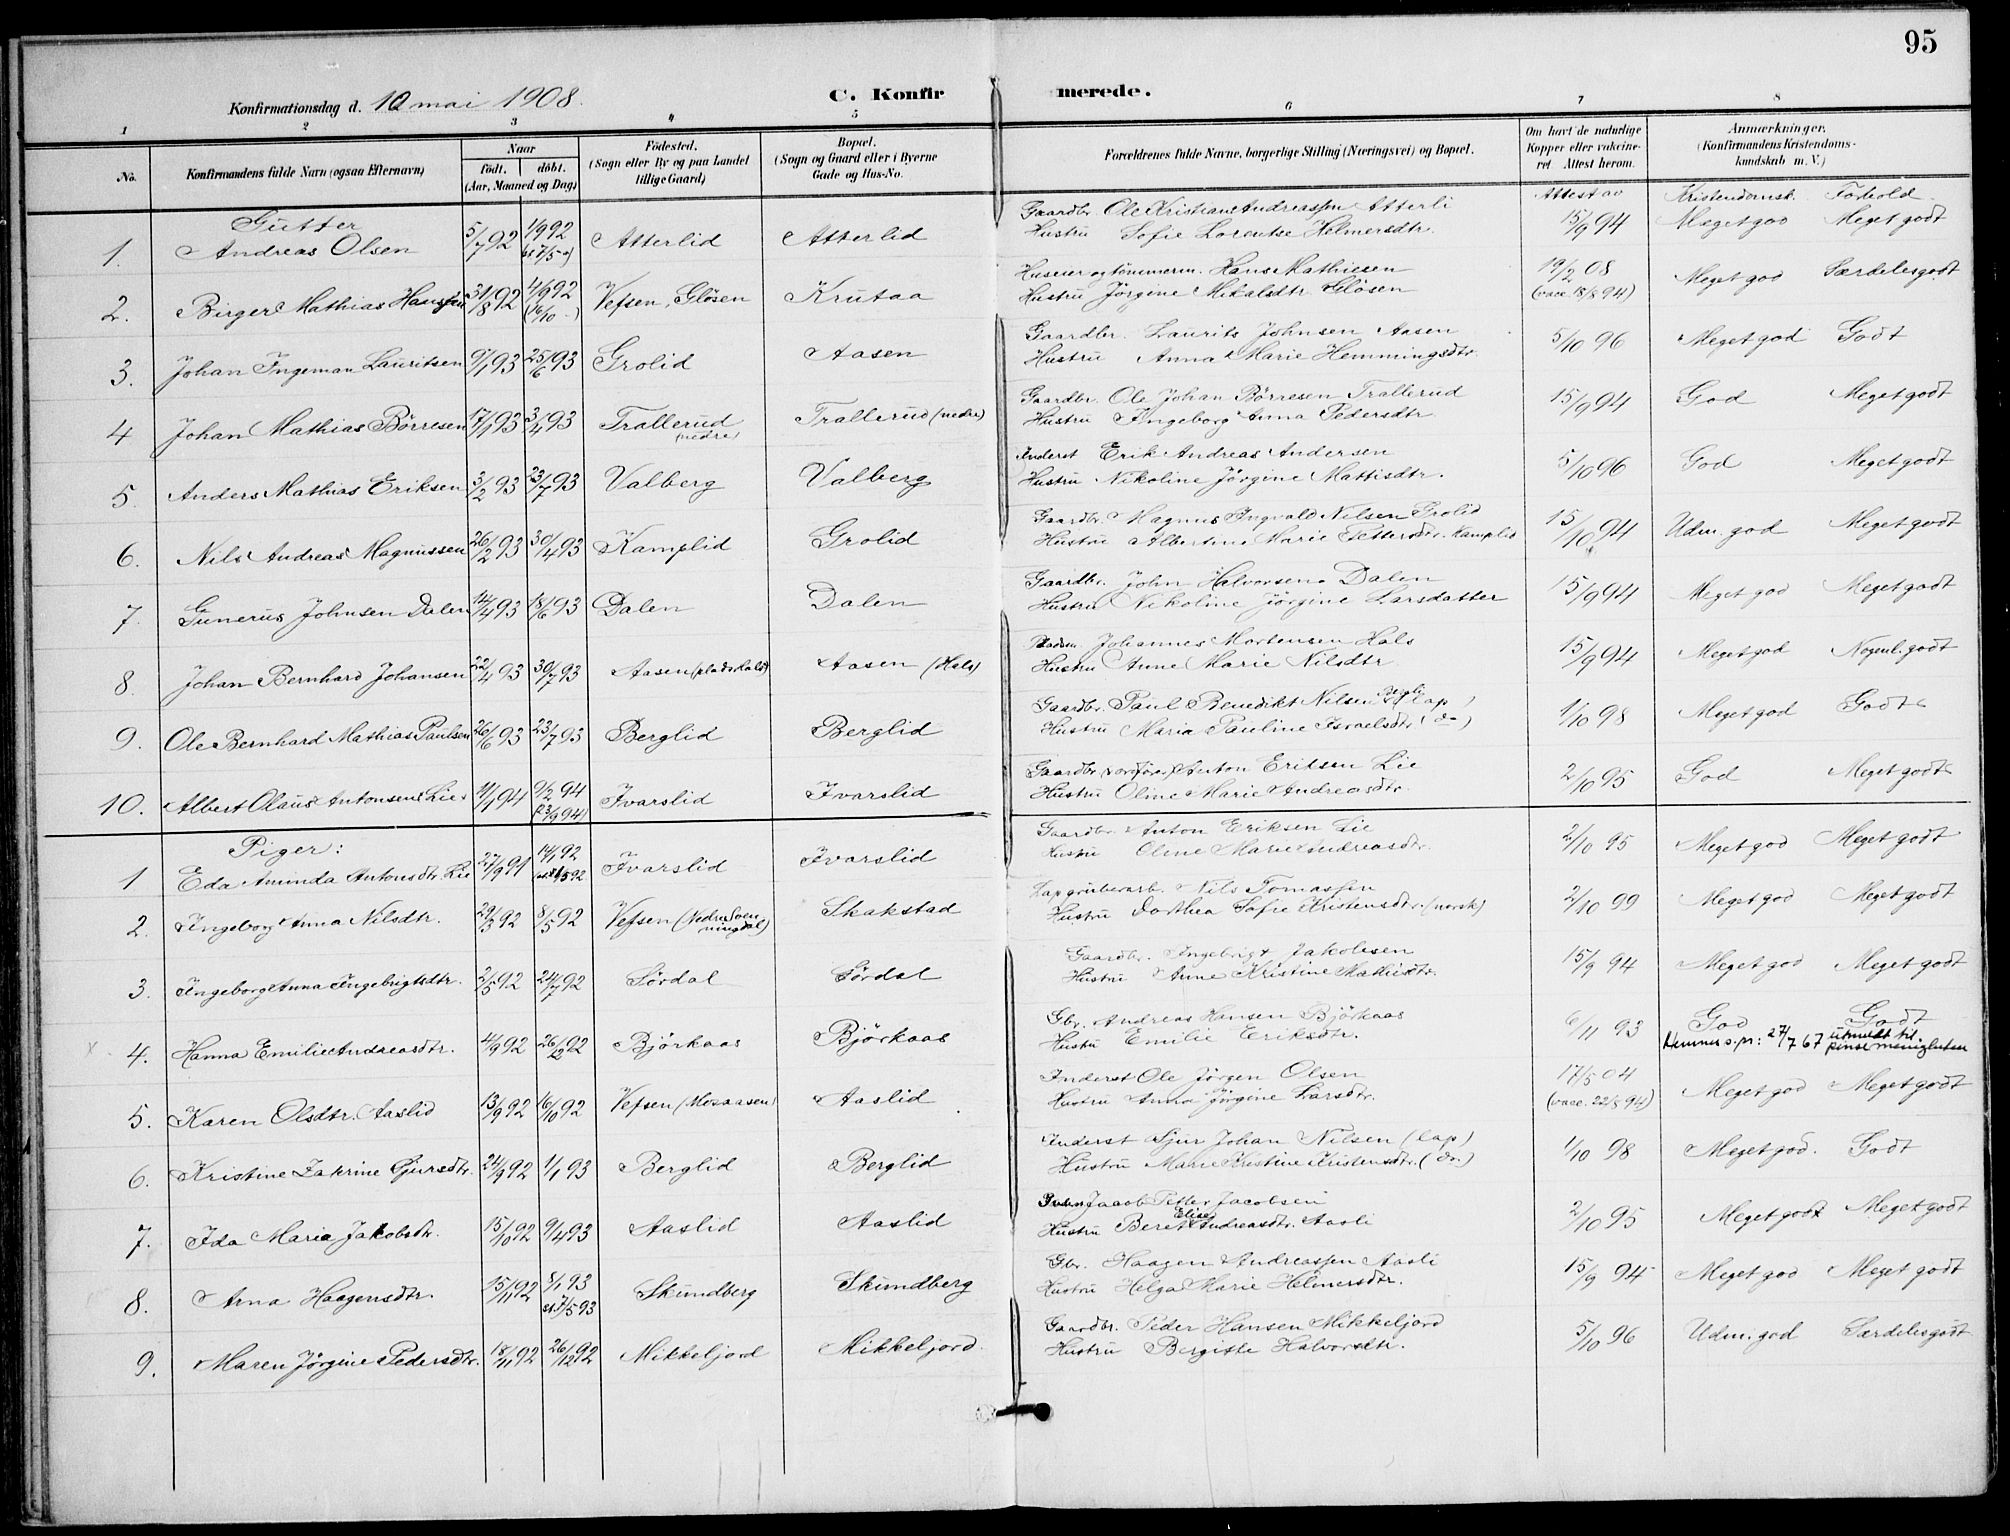 95
Konfirmationsdag d. 10 mai 1908.
C. Konfirmerede.
1 2 3 4 5 6 7 8
No. Konfirmandens fulde Navn (ogsaa Efternavn)
Naar født. døbt. (Aar, Maaned og Dag)
Fødested. (Sogn eller By og paa Landet tillige Gaard)
Bopæl. (Sogn og Gaard eller i Byerne Gade og Hus-No.
Forældrenes fulde Navne, borgerlige Stilling (Næringsvei) og Bopæl.
Om havt de naturlige Kopper eller vakcineret Attest herom.
Anmærkninger. (Konfirmandens Kristendomskundskab m. V.)
Attest av Kristendomsk. Forhold.
Gutter
1. Andreas Olsen 5/7 92 4/9 92 Atterlid Atterlid Gaardbr. Ole Kristian Andreassen Atterli 15/9 94 Meget god Meget godt
Hustru Sofie Lorentse Helmersdtr.
2. Birger Mathias Hansen 31/8 92 4/9 92 (16/10 -) Vefsen, Glösen Krutaa Huseier og tömmerm. Hans Mathiesen 19/2 08 Meget god Særdeles godt
Hustru Jörgine Mikalsdtr Glösen (vacc. 18/8 94)
3. Johan Ingeman Lauritsen 9/1 93 25/6 93 Grolid Aasen Gaardbr. Laurits Johnsen Aasen 5/10 96 Meget god Godt
Hustru Anna Marie Hemmingsdtr.
4 Johan Mathias Börresen 17/1 93 3/4 93 Trallerud (nedre) Trallerud (nedre) Gaardbr. Ole Johan Börresen Trallerud 15/9 94 God Meget godt
Hustru Ingeborg Anna Pedersdtr
5 Anders Mathias Eriksen 3/2 93 23/7 93 Valberg Valberg Inderst Erik Andreas Andersen 5/10 96 God Meget godt
Hustru Nikoline Jörgine Mattisdtr.
6. Nils Andreas Magnussen 26/2 93 30/4 93 Kamplid Grolid Gaardbr. Magnus Ingvald Nilsen Grolid 15/10 94 Udm. god Meget godt
Hustru Albertine Marie Pettersdtr. Kamplid
7. Gunerius Johnsen Dalen 14/4 93 18/6 93 Dalen Dalen Gaardbr. John Halvorsen Dalen 15/9 94 Meget god Meget godt
Hustru Nikoline Jörgine Larsdatter
8. Johan Bernhard Johansen 22/4 93 30/7 93 Aasen (plads Hals) Aasen (Hals) Johannes Mortensen Hals 15/9 94 Meget god Nogenl. godt
Hustru Anne Marie Nilsdtr
9. Ole Bernhard Mathias Paulsen 26/6 93 23/7 93 Berglid Berglid Gaardbr. Paul Benedikt Nilsen Bergli (lap) 1/10 98 Meget god Godt
Hustru Maria Pauline Israelsdtr (do)
10. Albert Olaus Antonsen Lie 11/1 94 9/2 94 (23/9 94) Ivarslid Ivarslid Gaardbr. (ordförer) Anton Eriksen Lie 2/10 95 God Meget godt
Hustru Oline Marie Andreasdtr.
Piger:
1 Eda Aminda Antonsdtr. Lie 27/9 91 14/1 92 Ivarslid Ivarslid Gaardbr. Anton Eriksen Lie 2/10 95 Meget god Meget godt
Hustru Oline Marie Andreasdtr.
2. Ingeborg Anna Nilsdtr. 29/3 92 8/5 92 Vefsen (Nedre Svenningdal) Skakstad Lap gruberarb. Nils Tomassen 2/10 99 Meget god Meget godt
Hustru Dorthea Sofie Kristensdtr. (norsk)
3. Ingeborg Anna Ingebrigtsdtr. 2/5 92 24/7 92 Sördal Sördal Gaardbr. Ingebrigt Jakobsen 15/9 94 Meget god Meget godt
Hustru Anne Kristine Mathisdtr.
x 4. Hanna Emilie Andreasdtr. 4/9 92 26/12 92 Björkaas Björkaas Gbr. Andreas Hansen Björkaas 6/11 93 God Godt
Hustru Emilie Eriksdtr. Hemnes s.pr: 27/7 67 utmeldt til pinsemenigheten
5. Karen Olsdtr. Aaslid 13/9 92 16/10 92 Vefsen (Mosaasen) Aaslid Inderst Ole Jörgen Olsen 17/5 04 Meget god Meget godt
Hustru Anna Jörgine Larsdtr. (vacc. 22/8 94)
6. Kristine Katrine Sjursdtr. 24/9 92 1/1 93 Berglid Berglid Inderst Sjur Johan Nilsen (lap) 1/10 98 Meget god. Godt
Hustru Marie Kristine Kristensdtr. (do.)
7. Ida Maria Jakobsdtr. 15/10 92 9/4 93 Aaslid Aaslid Jacob Petter Jacobsen 2/10 95 Meget godt Meget godt
Hustru Beret Elise Andreasdtr. Aasli
8. Arna Haagensdtr. 15/11 92 8/1 93 st 7/5 93 Skundberg Skundberg Gbr. Haagen Andreassen Aasli 15/9 94 Meget god Meget godt
Hustru Helga Marie Helmersdtr.
9. Maren Jörgine Pedersdtr. 18/11 92 26/12 92 Mikkeljord Mikkeljord. Gaardbr. Peder Hansen Mikkeljord 5/10 96 Udm. god Særdeles godt
Hustru Bergitte Halvorsdtr.